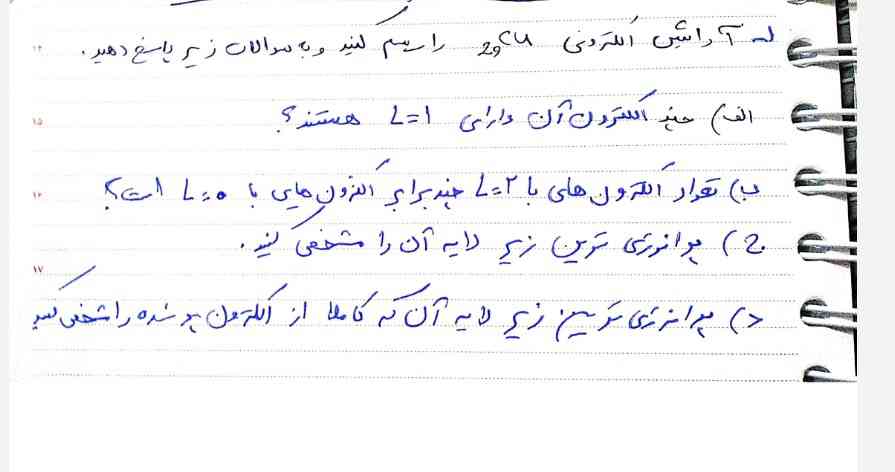 آرایش الکترونی ₂₉Cu را رسم کنید و به سوالات زیر پاسخ دهید.
۱۴
الف) چند الکترون آن دارای L=1 هستند؟
۱۵
ب) تعداد الکترون های با L=۲ چند برابر الکترون هایی با L=۰ است؟
۱۶
ج) پر انرژی ترین زیر لایه آن را مشخص کنید.
۱۷
د) پر انرژی ترین زیر لایه آن که کاملا از الکترون پر شده را مشخص کنید